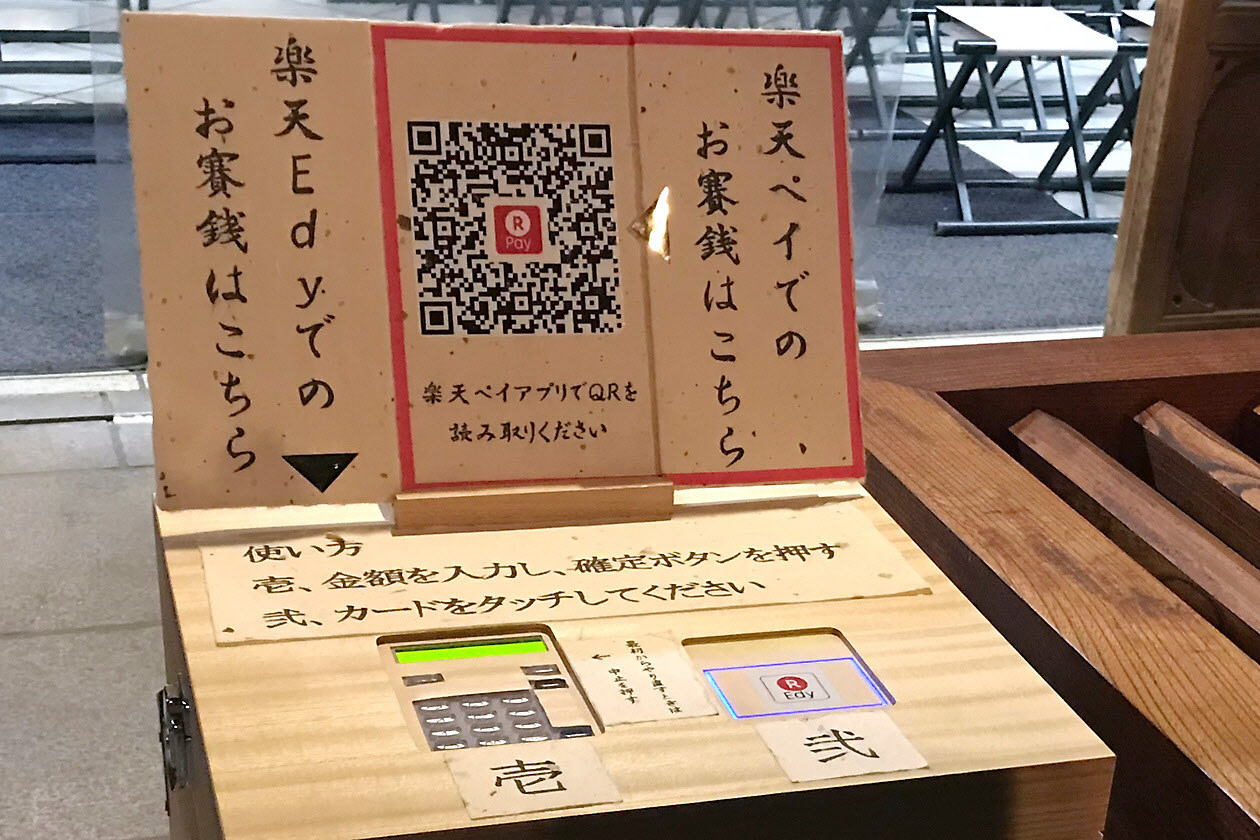 楽天ペイでの
お賽銭はこちら
R
Pay
楽天ペイアプリでQRを
読み取りください
楽天Edyでの
お賽銭はこちら
使い方
壱、金額を入力し、確定ボタンを押す
弐、カードをタッチしてください
最初からやり直すときは
中止を押す
←
R
Edy
壱
弐